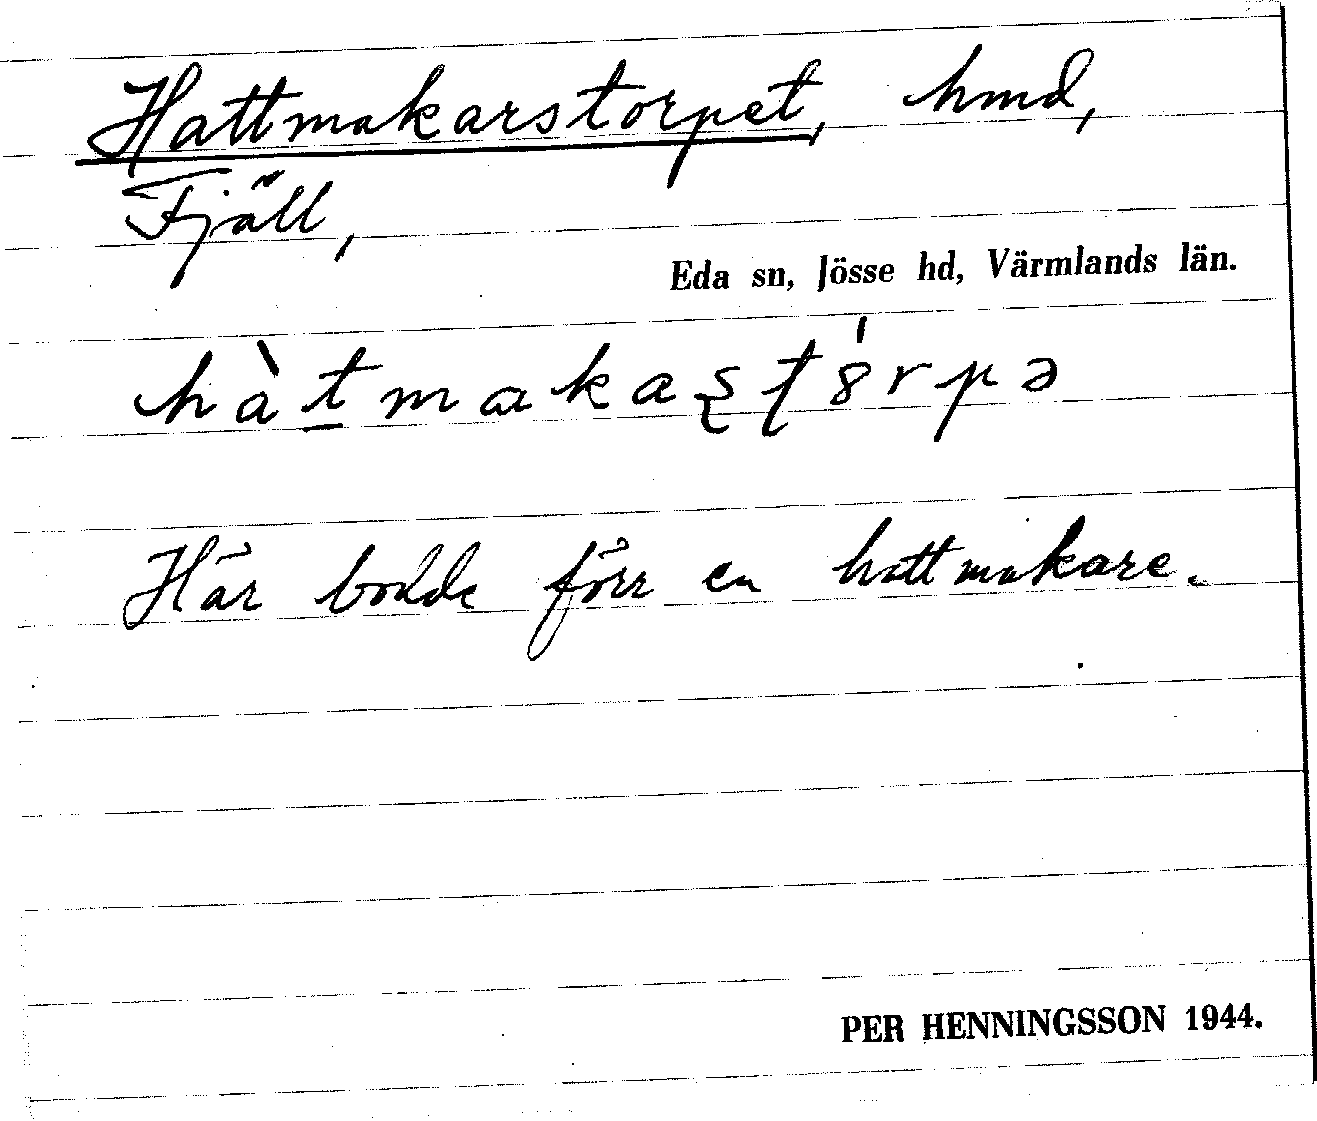 Hattmakarstorpet, hmd,
Fjäll,
Eda sn, Jösse hd, Värmlands län.
hàt̲makaʂʈ8́rpə
Här bodde förr en hattmakare.
PER HENNINGSSON 1944.